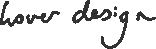 hover design